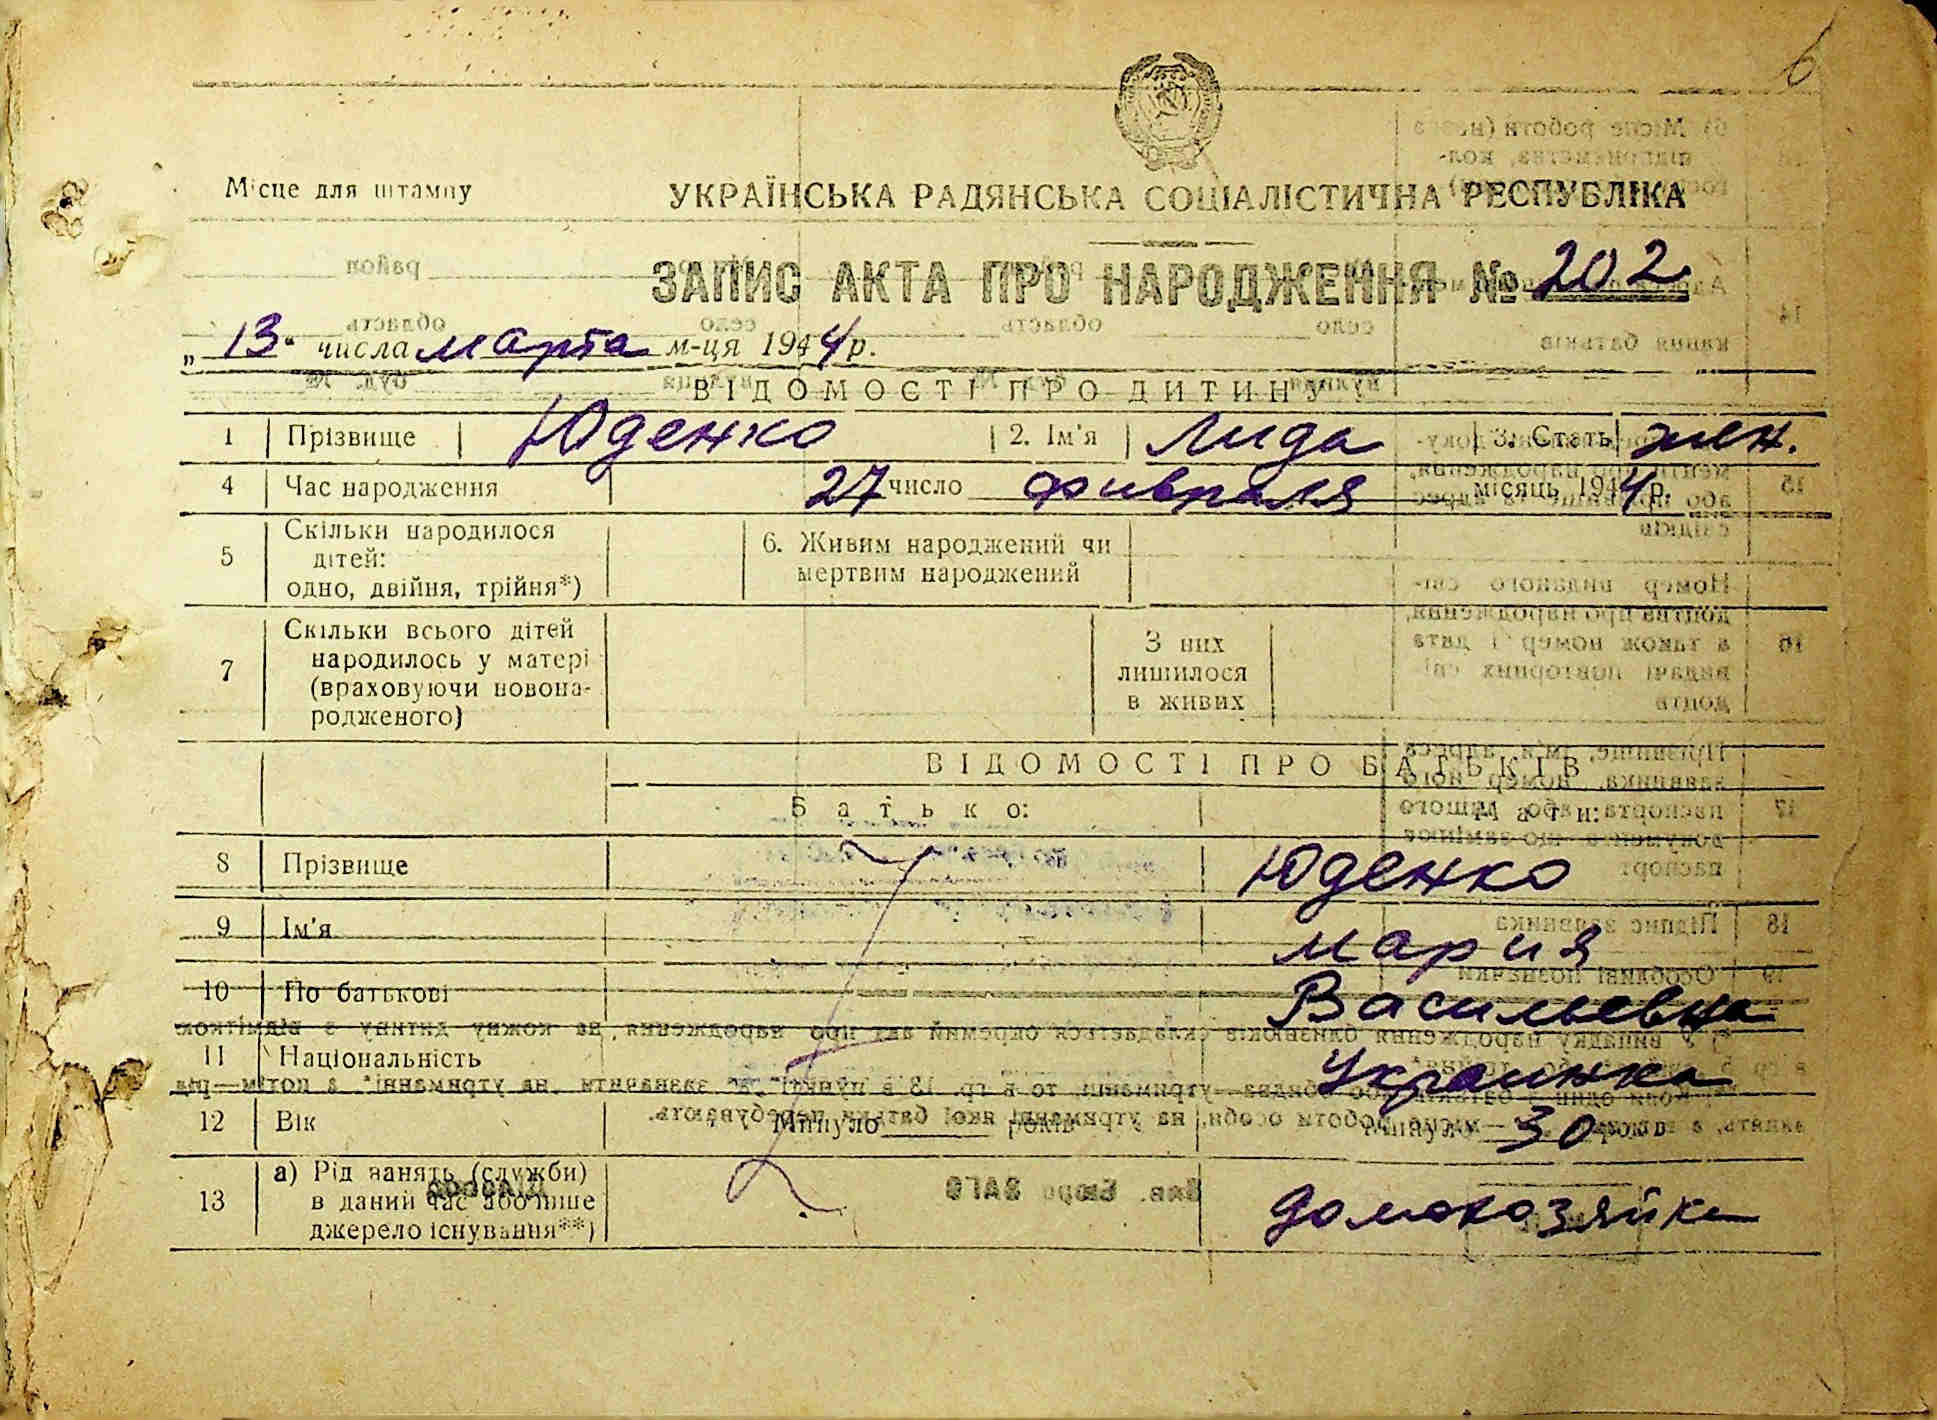 6
Місце для штампу
УКРАЇНСЬКА РАДЯНСЬКА СОЦІАЛІСТИЧНА РЕСПУБЛІКА
ЗАПИС АКТА ПРО НАРОДЖЕННЯ № 202
„ 13 " числа марта м-ця 1944 р.
ВІДОМОСТІ ПРО ДИТИНУ
1 Прізвище Юденко 2. Ім'я Лида 3. Стать жен.
4 Час народження 27 число февраля місяць 1944 р.
5 Скільки народилося дітей: одно, двійня, трійня*) 6. Живим народжений чи мертвим народжений
7 Скільки всього дітей народилось у матері (враховуючи новонародженого) З них лишилося в живих
ВІДОМОСТІ ПРО БАТЬКІВ
Батько: Мати:
8 Прізвище Юденко
9 Ім'я Мария
10 По батькові Васильевна
11 Національність Украинка
12 Вік Минуло років Минуло 30 років
13 а) Рід занять (служби) в даний час або інше джерело існування**) домохозяйка